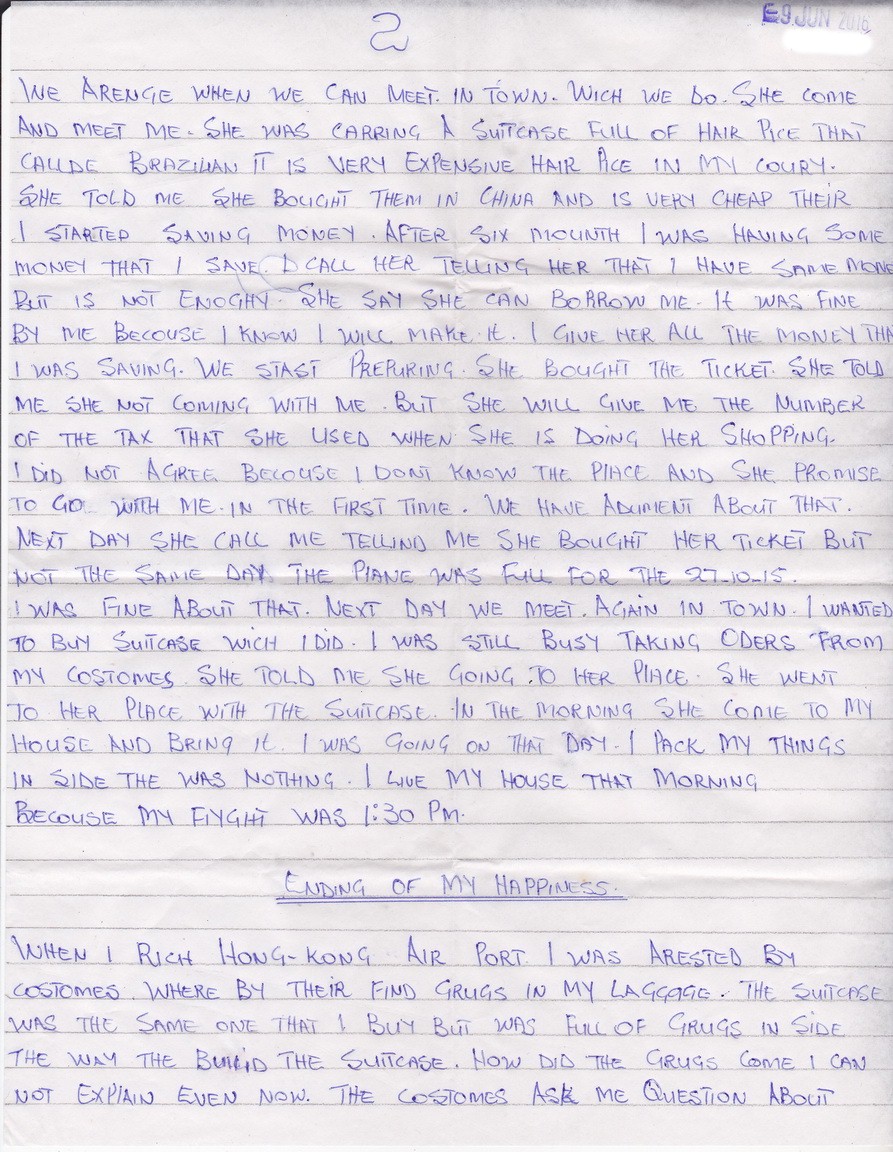 E9 JUN 2016
2
WE ARENGE WHEN WE CAN MEET. IN TOWN. WICH WE DO. SHE COME
AND MEET ME. SHE WAS CARRING A SUITCASE FULL OF HAIR PICE THAT
CALLDE BRAZILIAN IT IS VERY EXPENSIVE HAIR PICE IN MY COURY.
SHE TOLD ME SHE BOUGHT THEM IN CHINA AND IS VERY CHEAP THEIR
I STARTED SAVING MONEY. AFTER SIX MOUNTH I WAS HAVING SOME
MONEY THAT I SAVE. I CALL HER TELLING HER THAT I HAVE SAME MONE
BUT IS NOT ENOGHY. SHE SAY SHE CAN BORROW ME. IT WAS FINE
BY ME BECOUSE I KNOW I WILL MAKE IT. I GIVE HER ALL THE MONEY THA
I WAS SAVING. WE STAST PREPURING. SHE BOUGHT THE TICKET. SHE TOLD
ME SHE NOT COMING WITH ME. BUT SHE WILL GIVE ME THE NUMBER
OF THE TAX THAT SHE USED WHEN SHE IS DOING HER SHOPPING.
I DID NOT AGREE BECOUSE I DONT KNOW THE PLACE AND SHE PROMISE
TO GO WITH ME. IN THE FIRST TIME. WE HAVE ADUMENT ABOUT THAT.
NEXT DAY SHE CALL ME TELLIND ME SHE BOUGHT HER TICKET BUT
NOT THE SAME DAY. THE PLANE WAS FULL FOR THE 27-10-15.
I WAS FINE ABOUT THAT. NEXT DAY WE MEET. AGAIN IN TOWN. I WANTED
TO BUY SUITCASE WICH I DID. I WAS STILL BUSY TAKING ODERS FROM
MY COSTOMES. SHE TOLD ME SHE GOING TO HER PLACE. SHE WENT
TO HER PLACE WITH THE SUITCASE. IN THE MORNING SHE COME TO MY
HOUSE AND BRING IT. I WAS GOING ON THAT DAY. I PACK MY THINGS
IN SIDE THE WAS NOTHING. I LIVE MY HOUSE THAT MORNING
BECOUSE MY FLYGHT WAS 1:30 PM.
ENDING OF MY HAPPINESS.
WHEN I RICH HONG-KONG AIR PORT. I WAS ARESTED BY
COSTOMES. WHERE BY THEIR FIND GRUGS IN MY LAGGGGE. THE SUITCASE
WAS THE SAME ONE THAT I BUY BUT WAS FULL OF GRUGS IN SIDE
THE WAY THE BUILID THE SUITCASE. HOW DID THE GRUGS COME I CAN
NOT EXPLAIN EVEN NOW. THE COSTOMES ASK ME QUESTION ABOUT